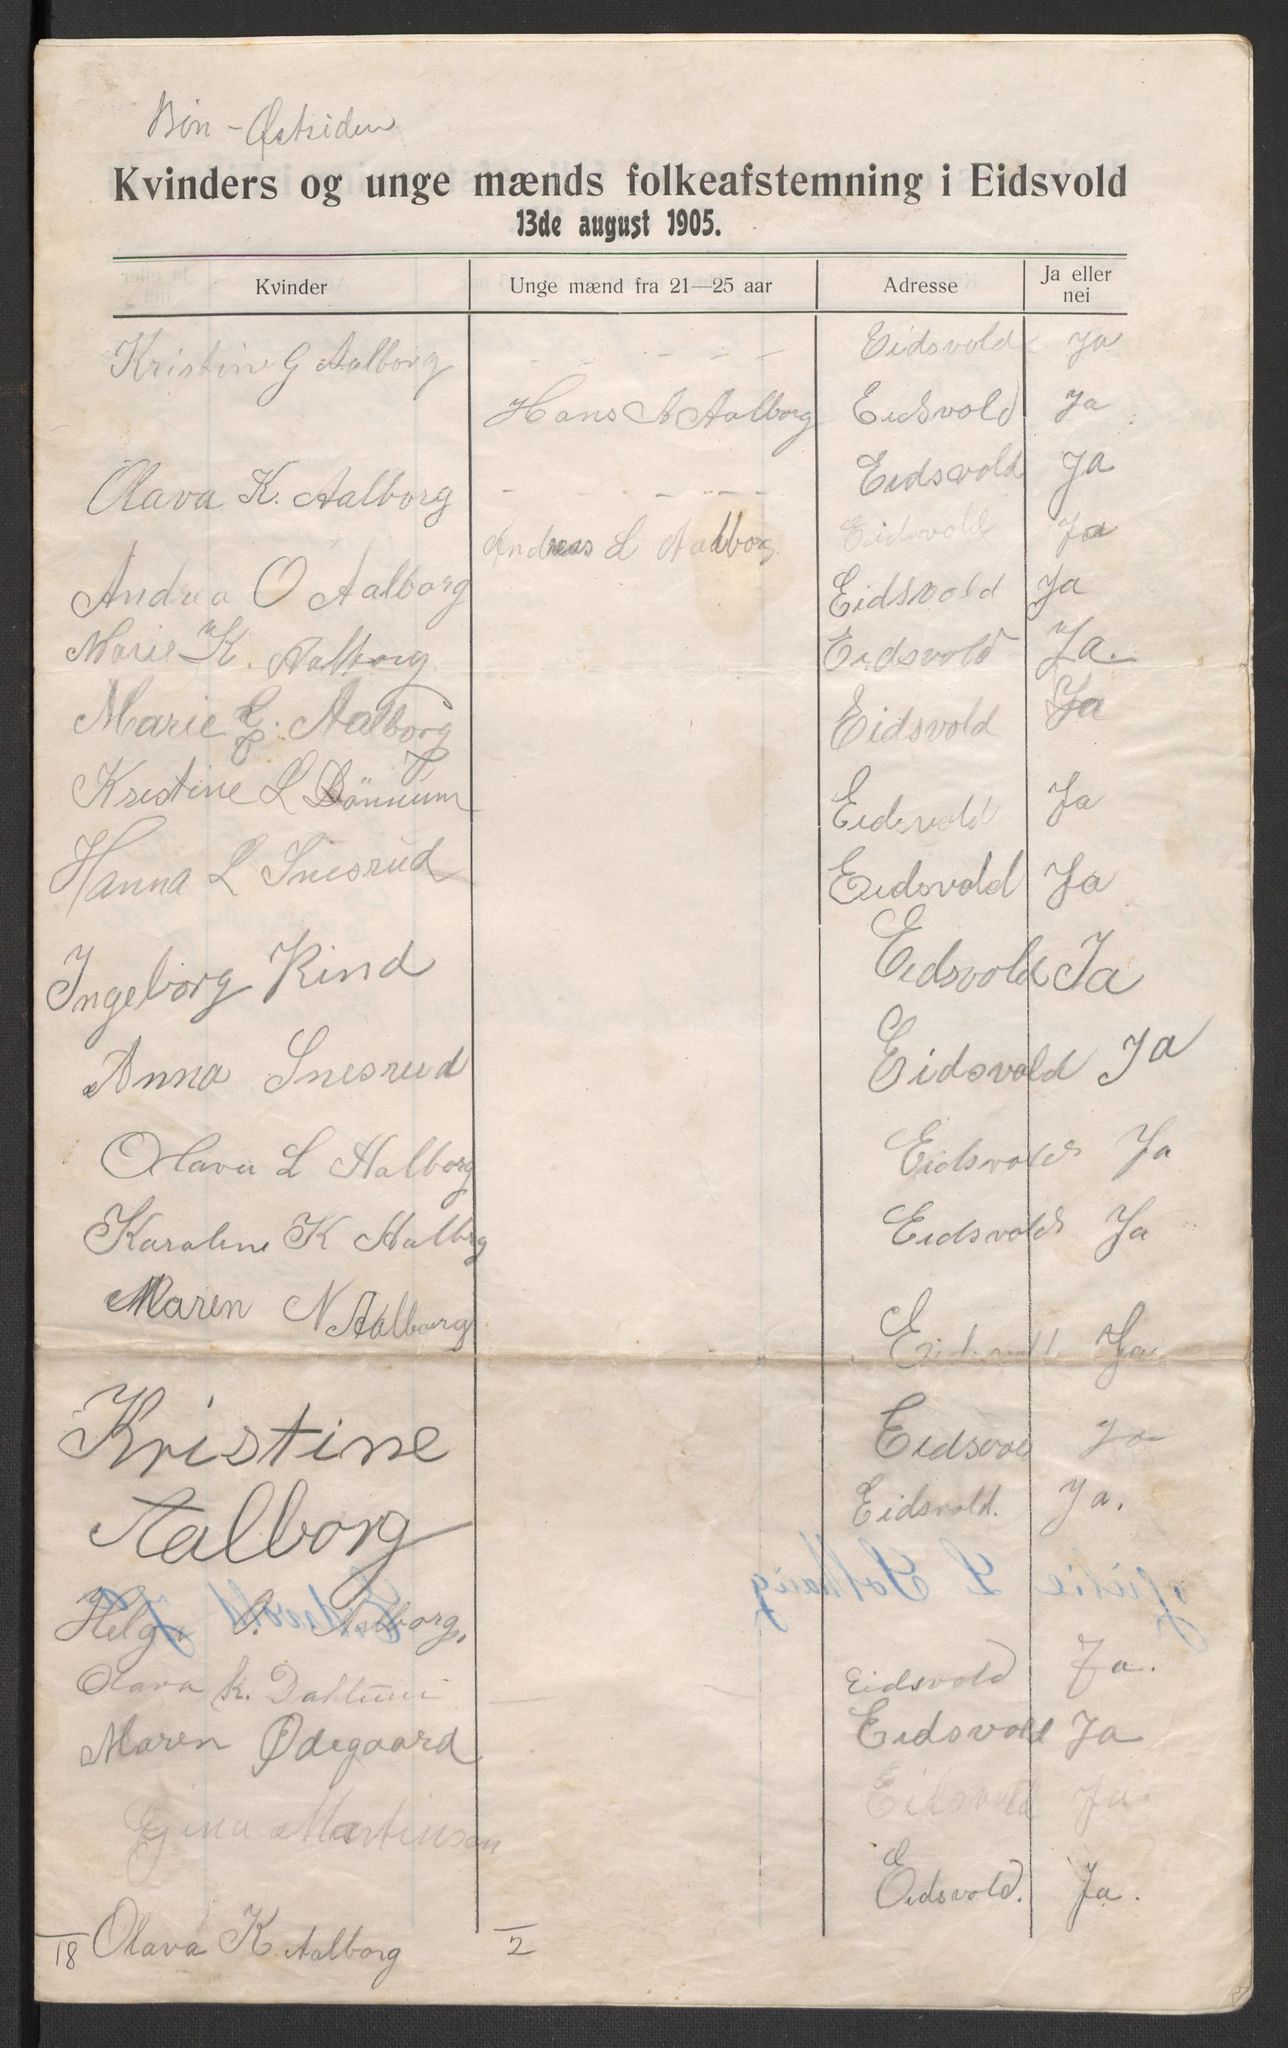 Bøn - Østsiden
Kvinders og unge mænds folkeafstemning i Eidsvold
13de august 1905.
Kvinder Unge mænd fra 21—25 aar Adresse Ja eller nei
Kristine G Aalborg - - - - - Eidsvold Ja
Hans A Aalborg Eidsvold Ja
Olava K. Aalborg - - - - - - Eidsvold Ja
Andreas L Aalborg. Eidsvold Ja
Andrea O Aalborg Eidsvold Ja
Marie K. Aalborg Eidsvold Ja.
Marie G. Aalborg Eidsvold Ja
Kristine L Dönnum Eidsvold Ja
Hanna L Snesrud Eidsvold Ja
Ingeborg Rind Eidsvold Ja
Anna Snesrud Eidsvold Ja
Olava L Aalborg Eidsvold Ja
Karoline K Aalbrg Eidsvold Ja
Maren N Aalborg Eidsvold Ja
Kristine Eidsvold Ja
Aalborg Eidsvold. Ja.
Helga O. Aalborg.
Olava K. Eidsvold Ja.
Maren Ødegaard Eidsvold Ja
Gina Martinsen Eidsvold Ja
Eidsvold. Ja.
18 Olava K. Aalborg 2